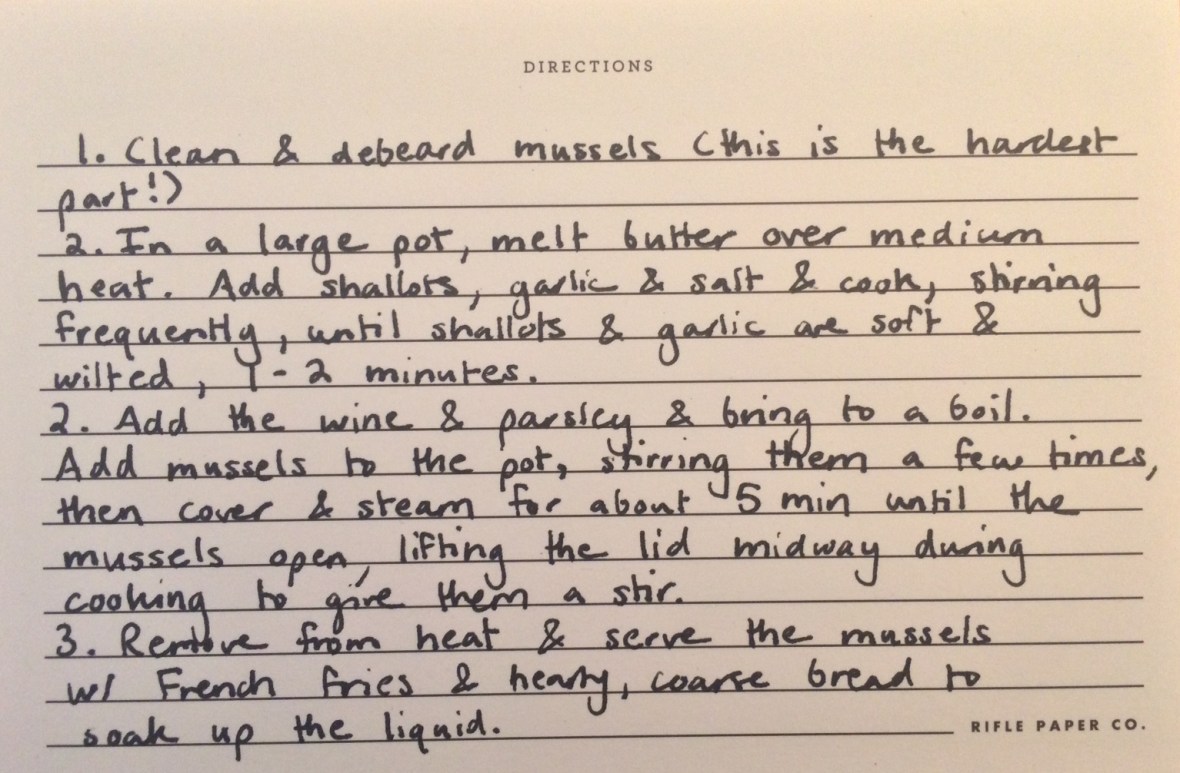 DIRECTIONS
1. Clean & debeard mussels (this is the hardest
part!)
2. In a large pot, melt butter over medium
heat. Add shallots, garlic & salt & cook, stirring
frequently, until shallots & garlic are soft &
wilted, 1-2 minutes.
2. Add the wine & parsley & bring to a boil.
Add mussels to the pot, stirring them a few times,
then cover & steam for about 5 min until the
mussels open, lifting the lid midway during
cooking to give them a stir.
3. Remove from heat & serve the mussels
w/ French fries & hearty, coarse bread to
soak up the liquid.
RIFLE PAPER CO.